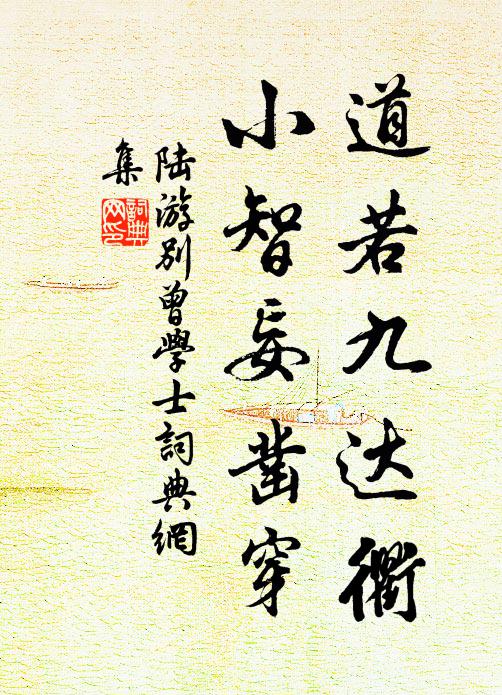 道若九达衢
小智妄凿穿
陆游别曾學士詞典網
集
詞典網印